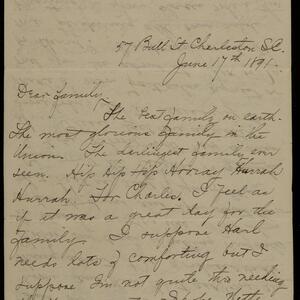 57 Bull St Charleston S.C.
June 17th 1891.
Dear Family,
The best family on earth.
The most glorious family in the
Union. The darlingest family ever
seen. Hip Hip Hip Hooray Hurrah
Hurrah for Charles. I feel as
if it was a great day for the
family. I suppose Carl
needs lots of comforting but I
suppose I'm not quite this needing